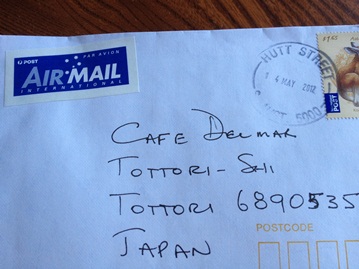 POST
PAR AVION
AIR MAIL
INTERNATIONAL
HUTT STREET
4 MAY 2012
5000
$1.65
POST
CAFE DELMAR
TOTTORI-SHI
TOTTORI 6890535
JAPAN
POSTCODE